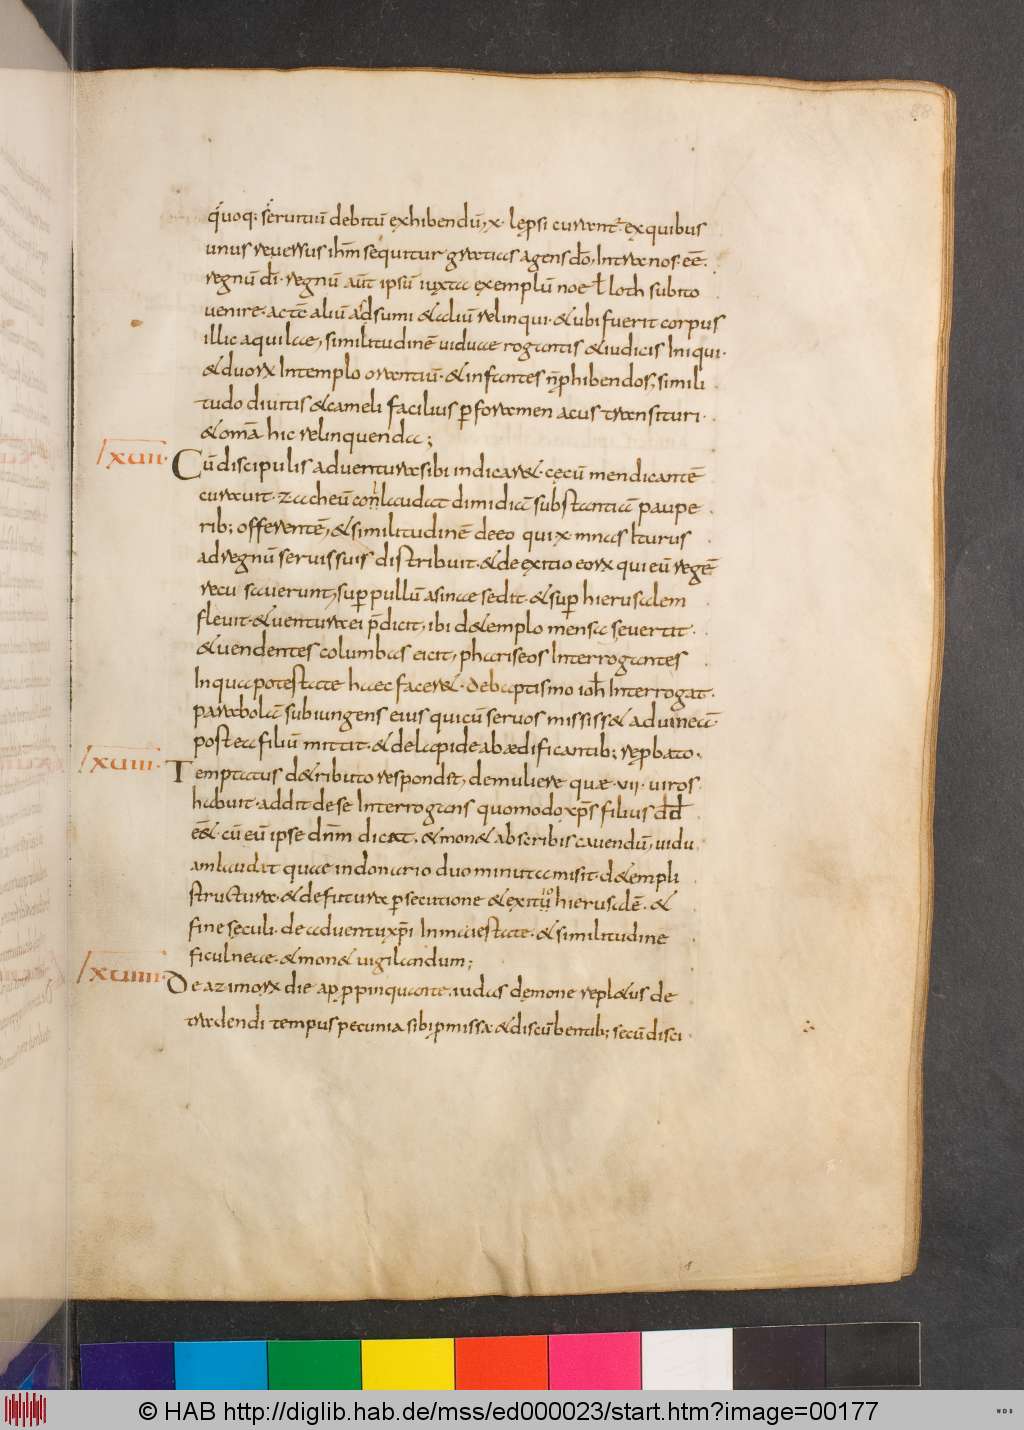 88
quoq: seruitiū debitū exhibendū, x. lepsi curantr̄ ex quibus
unus reuersus ihm̄ sequitur gratias agens dō, Intra nos eē.
regnū dī. regnū aūt ipsū iuxta exemplū noe ł loth subito
uenire. ac tē aliū adsumi & aliū relinqui. & ubi fuerit corpus
illic aquilae, similitudinē uiduae rogantis & iudicis Iniqui.
& duorx In templo orantiū. & infantes n̄ phibendos; simili
tudo diuitis & cameli facilius p foramen acus transituri.
& omā hic relinquenda;
XUII. Cū discipulis aduentura sibi indicar&. cecū mendicantē
curauit. zacheū conlaudat dimidiā substantiā paupe
rib; offerentē, & similitudinē de eo qui x mnas iturus
ad regnū seruis suis distribuit. & de exitio eorx qui eū regē
recusauerunt, sup pullū asinae sedit. & sup hierusalem
fleuit. & uentura ei p̄dicit, ibi d& emplo mensa seuertit.
& uendentes columbas eicit, phariseos Interrogantes
In qua potestate haec facer&. de baptismo ioħ Interrogat.
parabolā subiungens eius qui cū seruos misiss& ad uineā
postea filiū mittit. & de lapide ab ædificantib; repbato.
XUIII. Temptatus d& ributo respondit, de muliere quæ .vii. uiros
habuit. addit de se Interrogans quomodo xps̄ filius dd̄
ē&. cū eū ipse dnm̄ dicat. & mon& ab scribis cauendū, uidu
am laudat quae in donario duo minuta misit. d& empli
structura. & de futura psecutione & exitu hierusalē. &
fine seculi. de aduentu xpī In maiestate. & similitudine
ficulneae. & mon& uigilandum;
XUIIII. De azimorx die appinquante. iudas demone repl&us de
tradendi tempus pecunia sibi pmissa & discūbentib; secū disci
© HAB http://diglib.hab.de/mss/ed000023/start.htm?image=00177